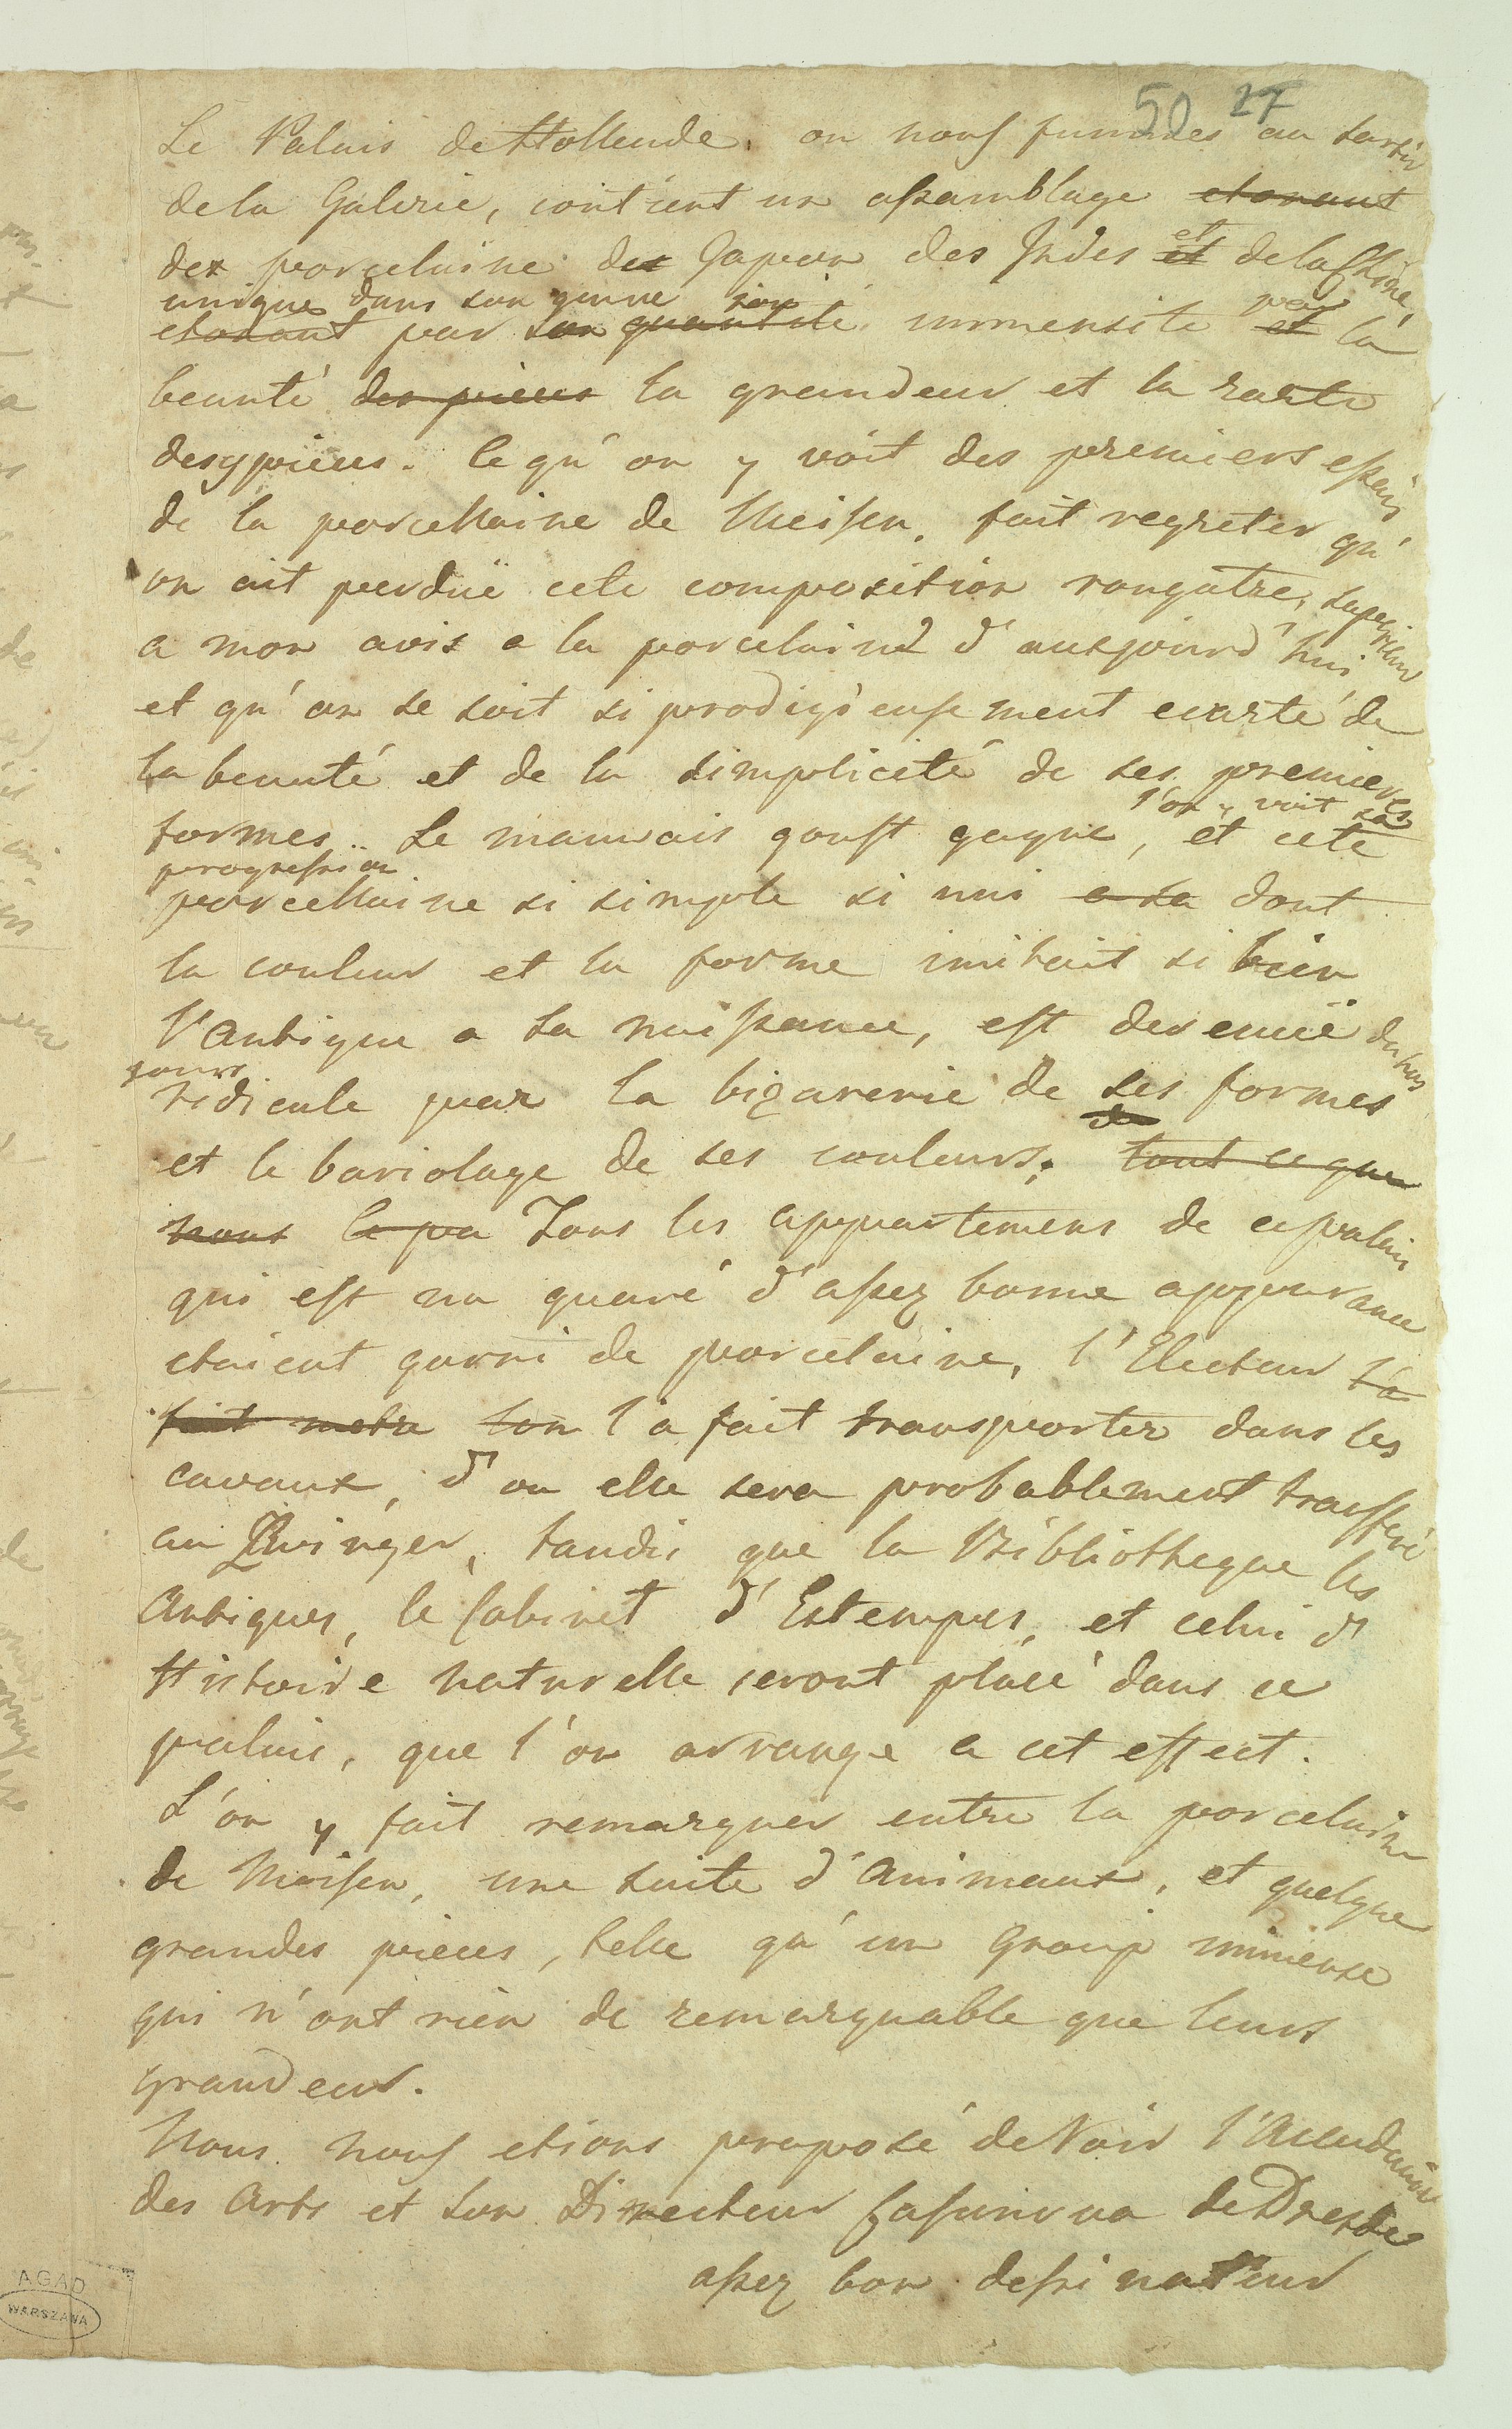 50 27
Le Palais de Hollende, ou nous fumes au sortir
de la Galerie, contient un assamblage etonant
des porcelaine des Japon des Indes et et de la Chine,
unique dans son genre son par
etonant par son quantité immensite et la
beauté des pieces la grandeur et la rarte
des pieces. Ce qu'on y voit des premiers essais
de la porcellaine de Meissen, fait regreter qu'
on ait perduë cete composition rougatre, superieur
a mon avis a la porcelaine d'aujourd'hui
et qu'on se soit si prodigieusement ecarté de
la beauté et de la simplicité de ses premieres
l'on y voit sa
formes. Le mauvais goust gagne, et cete
progression
porcellaine si simple si uni a sa dont
la couleur et la forme imitait si bien
l'Antique a sa naissance, est devenuë de nos
jours
ridicule par la bizarerie de ses formes
de
et le bariolage de ses couleurs, tout ce que
nous le pa Tous les appartemens de ce palais
qui est un quaré d'assez bonne appparance
etaient garni de porcelaine, l'Electeur l'a
fait metre son l'a fait transporter dans les
cavaux, d'ou elle sera probablement trasferé
au Zwinger, tandis que la Bibliotheque les
Antiques, le Cabinet d'Estempes, et celui d'
Histoire naturelle seront placé dans ce
palais, que l'on arrange a cet effect.
L'on y fait remarquer entre la porcelaine
de Meissen, une suite d'Animaux, et quelque
grandes pieces, telle qu'un Group immense
qui n'ont rien de remarquable que leurs
grandeur.
Nous nous etions proposé de Voir l'Academie
des Arts et son Directeur Casanova de Dresde
assez bon dessinateur
AGAD
WARSZAWA